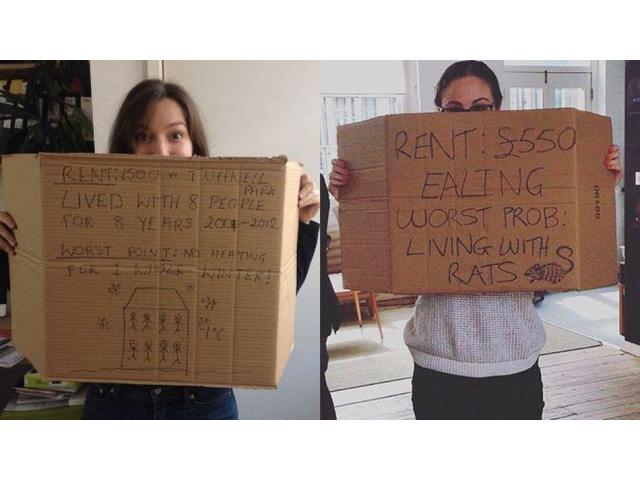 RENT: £500 IN TUFNELL
PARK
LIVED WITH 8 PEOPLE
FOR 8 YEARS 2004-2012
WORST POINT: NO HEATING
FOR 1 WHOLE WINTER!
-1°C
RENT: £550
EALING
WORST PROB:
LIVING WITH
RATS